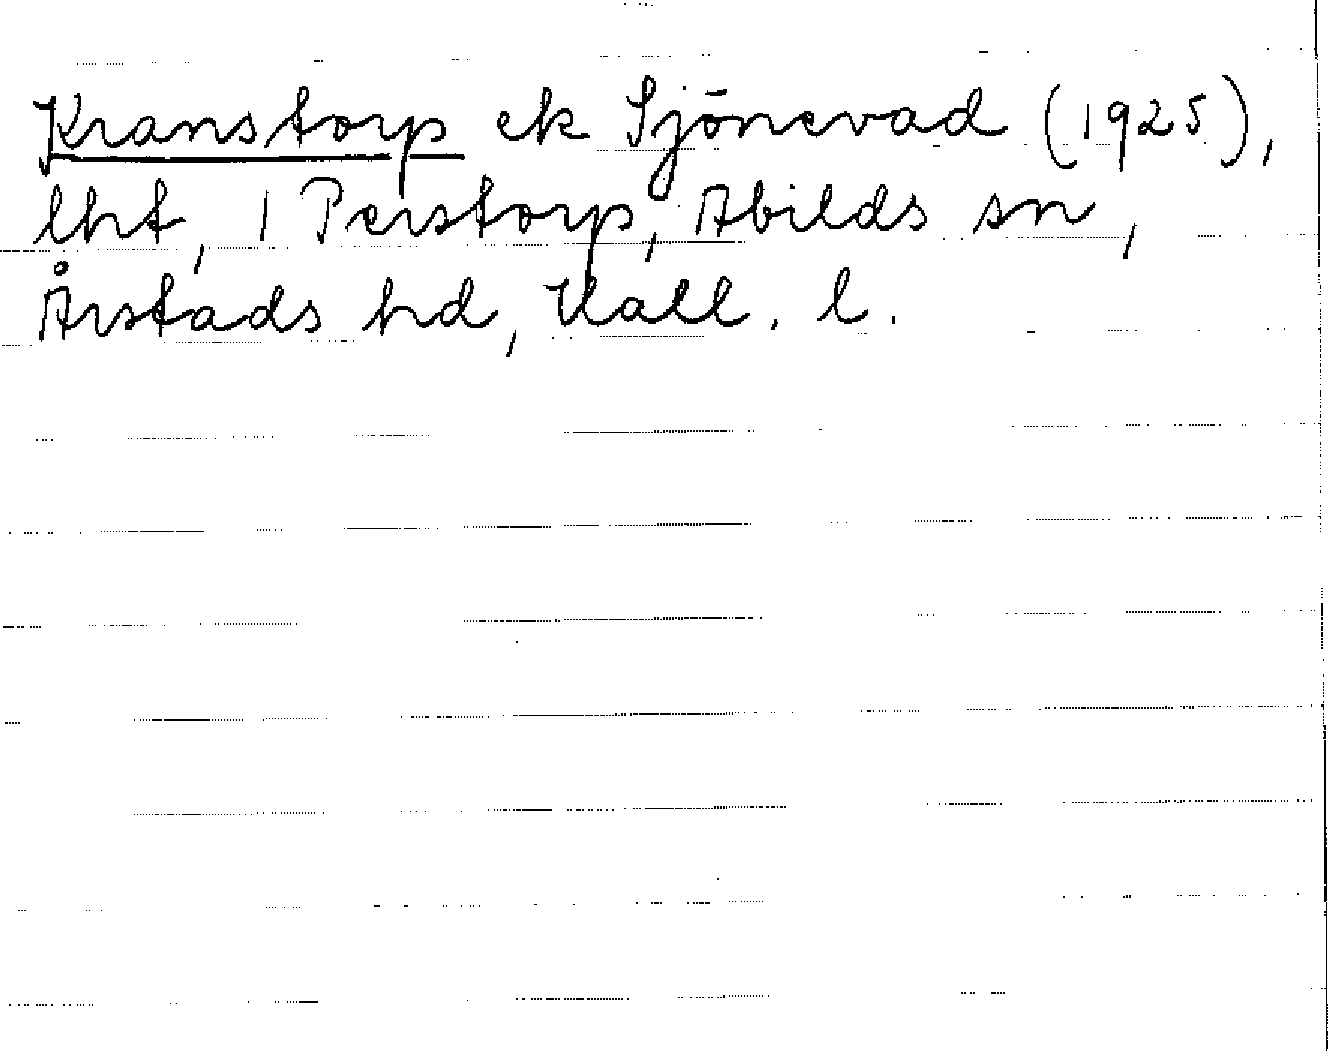 Kranstorp ek Sjönevad (1925),
lht, 1 Perstorp, Abilds sn,
Årstads hd, Hall. l.